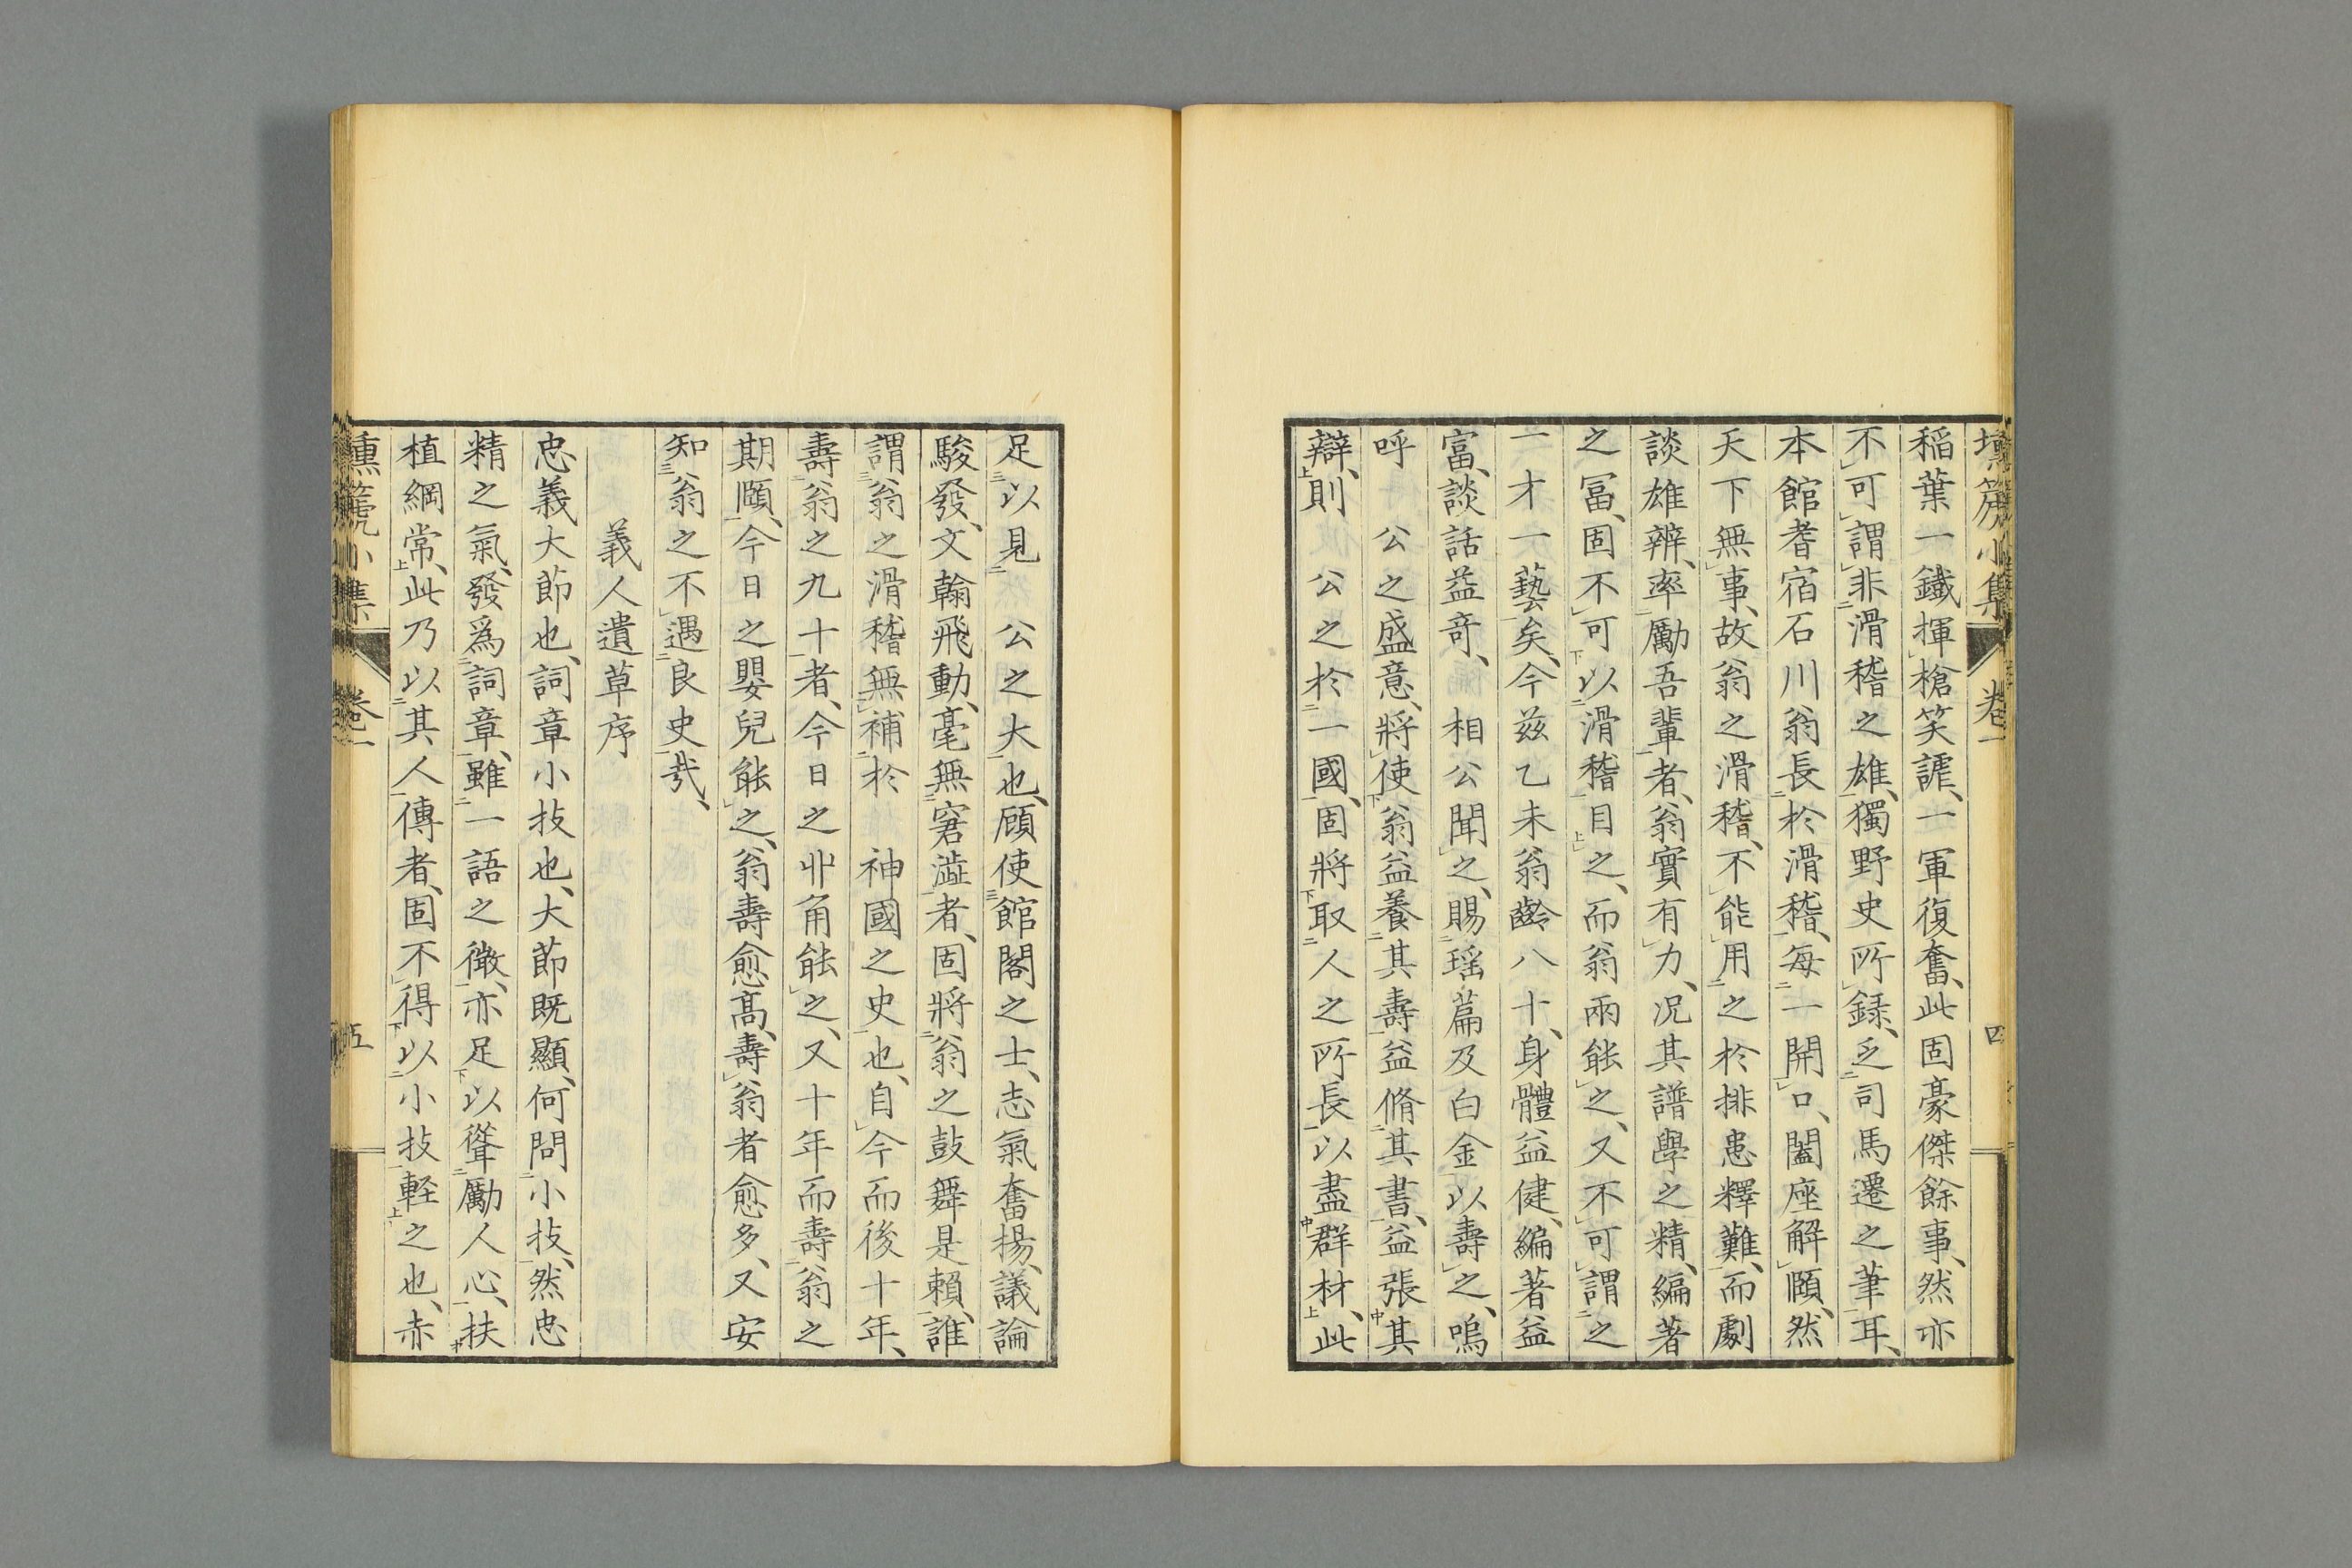 壎篪小集 卷一 四
稲葉一鐵揮槍笑謔、一軍復奮、此固豪傑餘事、然亦
不可謂非滑稽之雄、獨野史所録、乏司馬遷之筆耳、
本館耆宿石川翁長於滑稽、每一開口、闔座解頤、然
天下無事、故翁之滑稽、不能用之於排患釋難、而劇
談雄辨、率勵吾輩者、翁實有力、况其譜學之精、編著
之冨、固不可以滑稽目之、而翁兩能之、又不可謂之
一才一藝矣、今玆乙未翁齡八十、身體益健、編著益
富、談話益竒、 相公聞之、賜瑶篇及白金以壽之、嗚
呼 公之盛意、將使翁益養其壽益脩其書、益張其
辯、則 公之於一國、固將取人之所長以盡群材、此
足以見 公之大也、顧使館閣之士、志氣奮揚、議論
駿發、文翰飛動、毫無窘澁者、固將翁之鼓舞是賴、誰
謂翁之滑稽無補於 神國之史也、自今而後十年、
壽翁之九十者、今日之丱角能之、又十年而壽翁之
期頤、今日之嬰兒能之、翁壽愈髙、壽翁者愈多、又安
知翁之不遇良史㢤、
義人遺草序
忠義大節也、詞章小技也、大節既顯、何問小技、然忠
精之氣、發爲詞章、雖一語之微、亦足以聳勵人心、扶
植綱常、此乃以其人傳者、固不得以小技軽之也、赤
壎篪小集 卷一 五